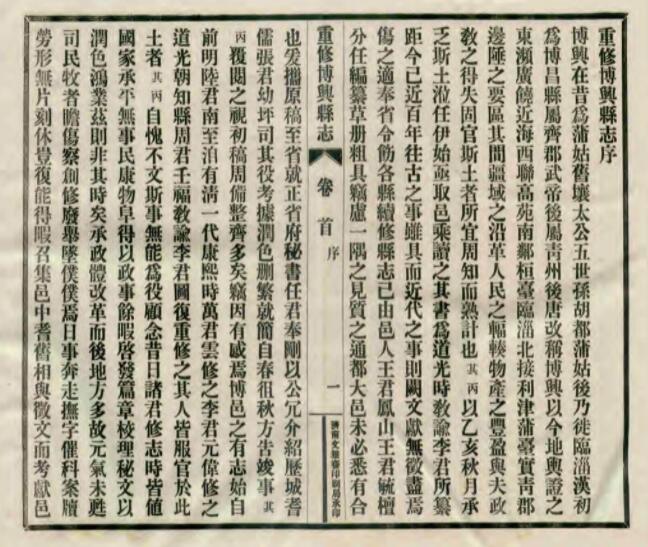 重修博興縣志序
博興在昔為蒲姑舊壤太公五世孫胡都蒲姑後乃徙臨淄漢初
為博昌縣屬齊郡武帝後屬青州後唐改稱博興以今地輿證之
東瀕廣饒近海西聯高苑南鄰桓臺臨淄北接利津蒲臺實青郡
邊陲之要區其間疆域之沿革人民之輻輳物產之豐盈與夫政
敎之得失固官斯土者所宜周知而熟計也其丙以乙亥秋月承
乏斯土涖任伊始亟取邑乘讀之其書為道光時敎諭李君所纂
距今已近百年往古之事雖具而近代之事則闕文獻無徵盡焉
傷之適奉省令飭各縣續修縣志已由邑人王君鳳山王君毓檀
分任編纂草册粗具竊慮一隅之見質之通都大邑未必悉有合
重修博興縣志
卷首
序
一
濟南文雅齋印刷局承印
也爰攜原稿至省就正省府秘書任君奉剛以公冗介紹歷城耆
儒張君幼坪司其役考據潤色删繁就簡自春徂秋方吿竣事其
丙覆閱之視初稿周備整齊多矣竊因有感焉博邑之有志始自
前明陸君南至洎有清一代康熙時萬君雲修之李君元偉修之
道光朝知縣周君壬福敎諭李君圖復重修之其人皆服官於此
土者其丙自愧不文斯事無能為役顧念昔日諸君修志時皆値
國家承平無事民康物阜得以政事餘暇啓發篇章校理秘文以
潤色鴻業茲則非其時矣承政體改革而後地方多故元氣未甦
司民牧者瞻傷察創修廢舉墜僕僕焉日事奔走撫字催科案牘
勞形無片刻休豈復能得暇召集邑中耆舊相與徵文而考獻邑